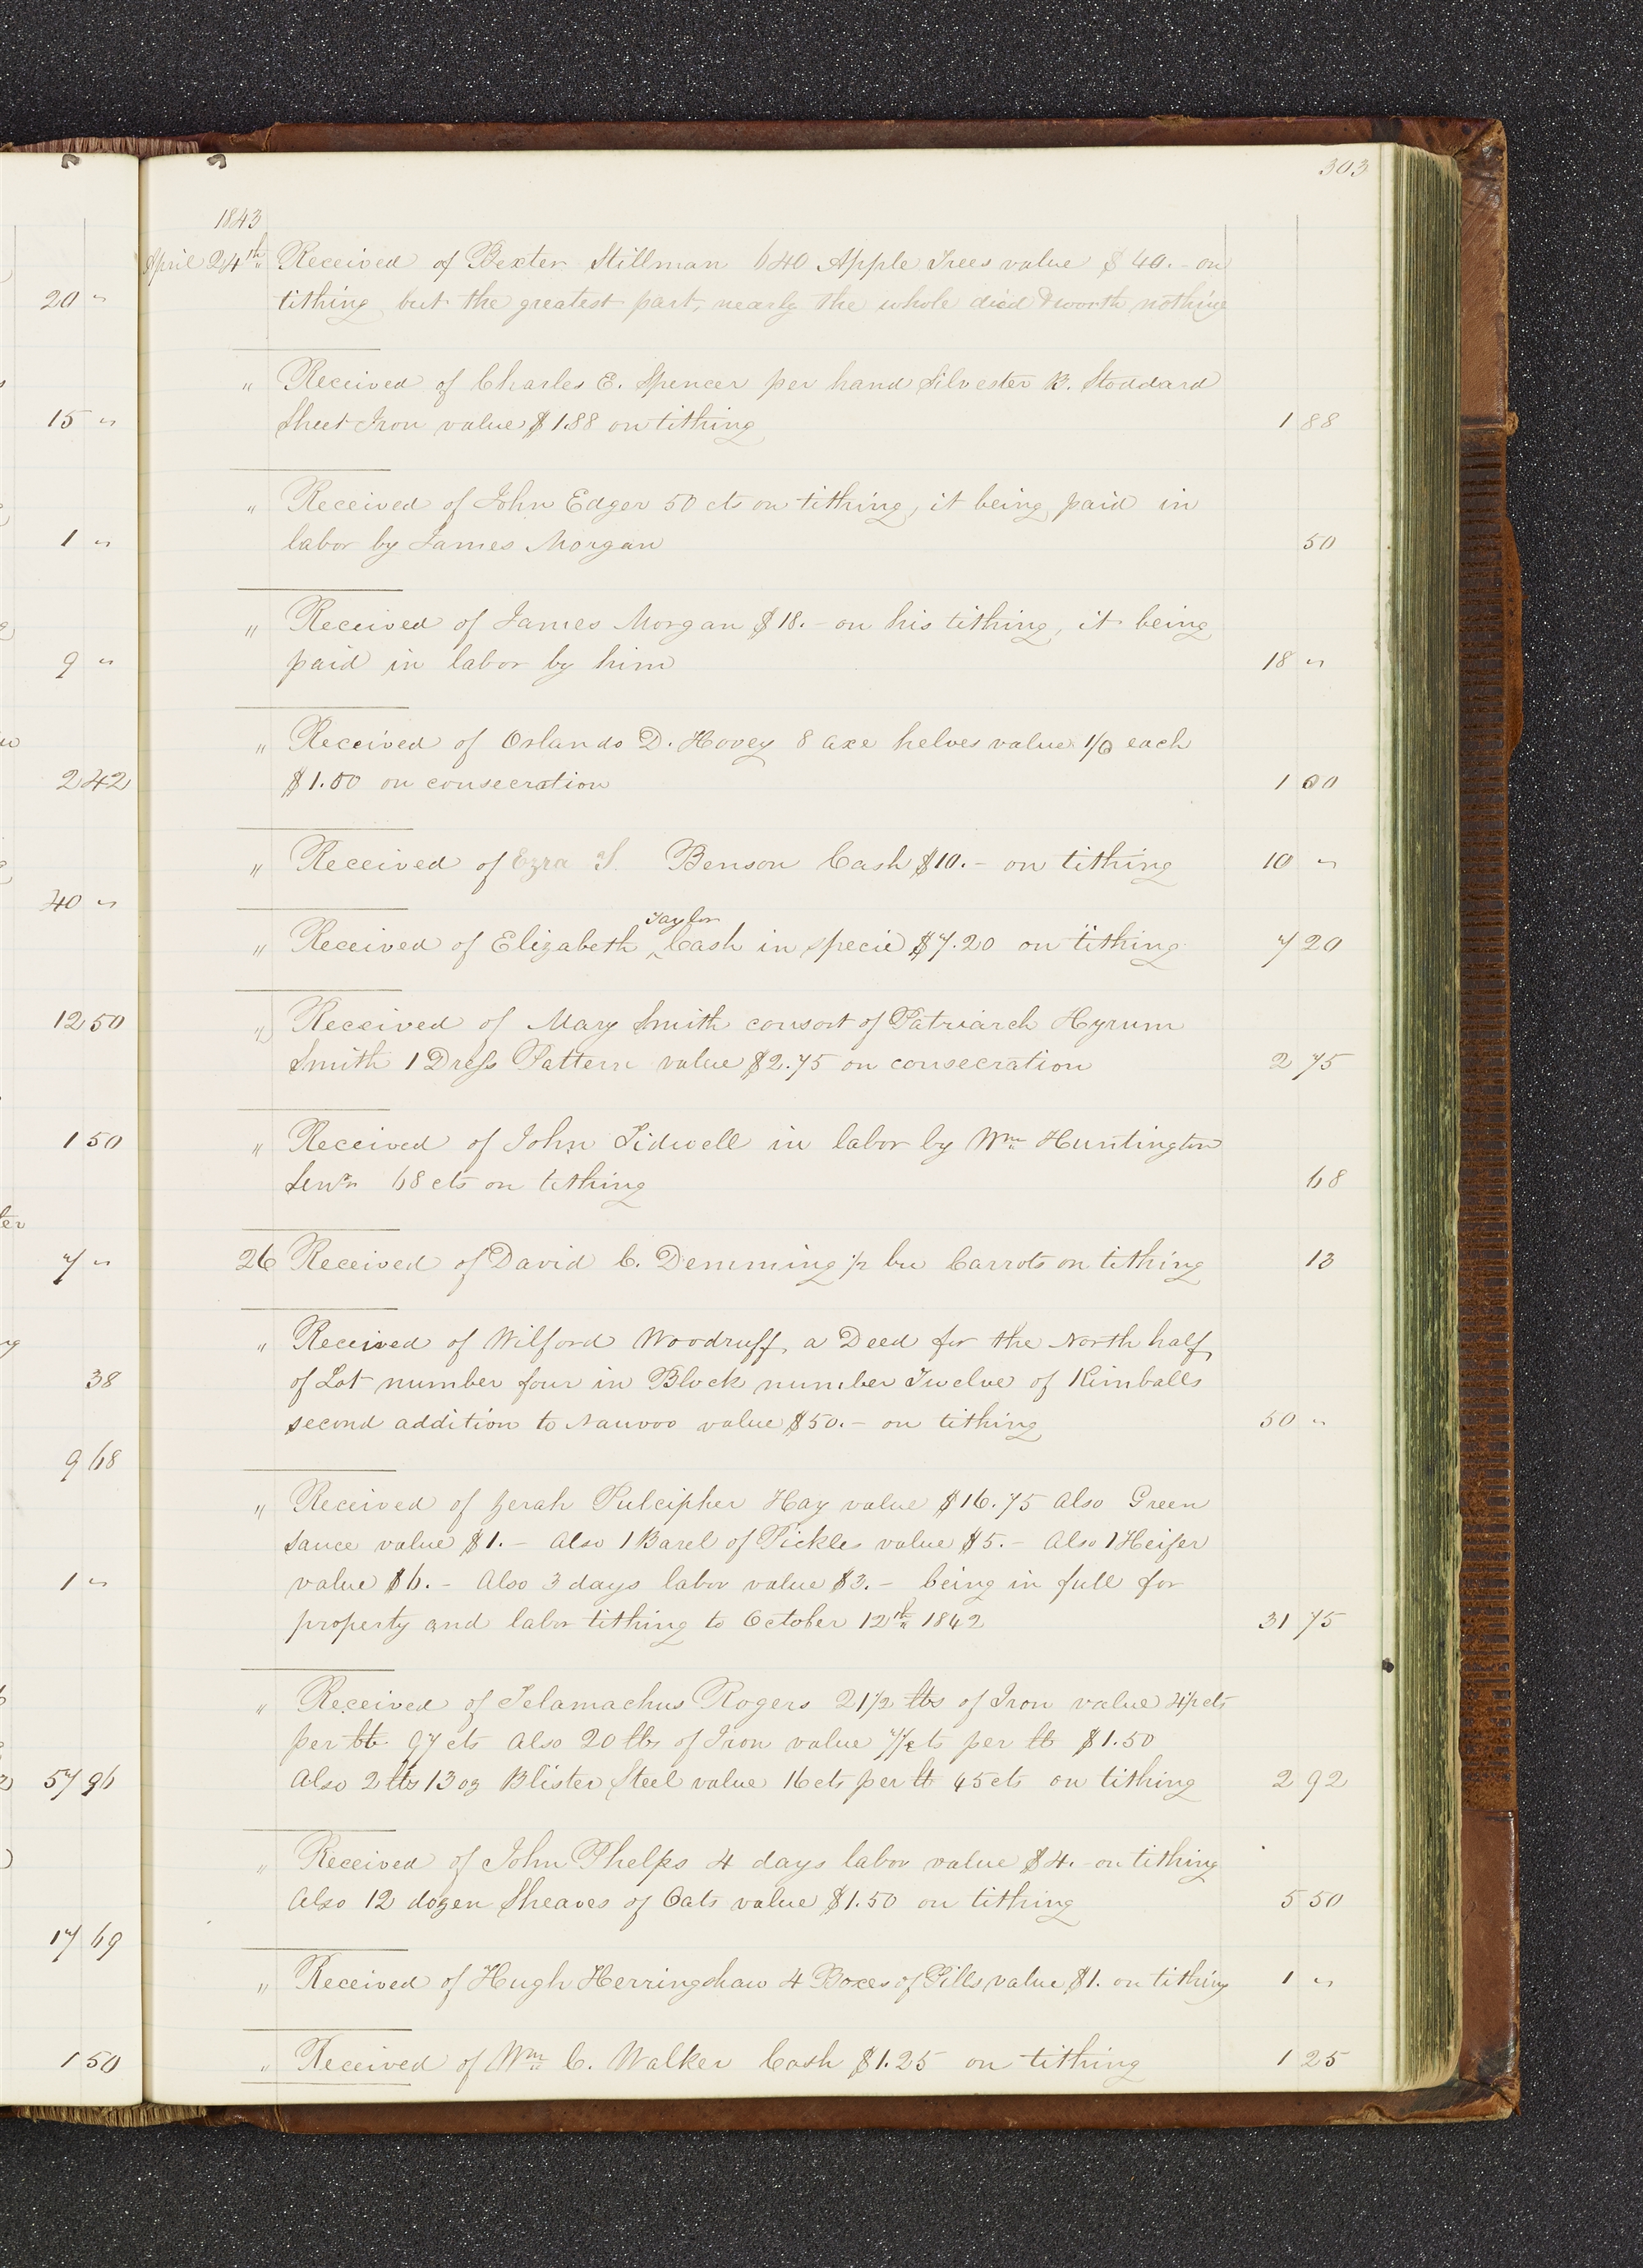 303
1843
April 24th " Received of Dexter Stillman 640 Apple Trees value $40.- on
20 "
tithing but the greatest part, nearly the whole died & worth nothing
" Received of Charles E. Spencer per hand Silvester B. Stoddard
15 "
Sheet Iron value $1.88 on tithing 1 88
" Received of John Edger 50 cts on tithing, it being paid in
1 "
labor by James Morgan 50
" Received of James Morgan $18.- on his tithing, it being
9 "
paid in labor by him 18 "
" Received of Orlando D. Hovey 8 axe helves value 1/0 each
2 42
$1.00 on consecration 1 00
" Received of Ezra T. Benson Cash $10.- on tithing 10 "
40 "
Taylor
" Received of Elizabeth ^ Cash in specie $7.20 on tithing 7 20
12 50
" Received of Mary Smith consort of Patriarch Hyrum
Smith 1 Dress Pattern value $2.75 on consecration 2 75
1 50
" Received of John Tidwell in labor by Wm Huntington
Senr 68 cts on tithing 68
ter
7 "
26 Received of David C. Demming 1/2 bu Carrots on tithing 13
" Received of Wilford Woodruff, a Deed for the North half
38
of Lot number four in Block number Twelve of Kimballs
second addition to Nauvoo value $50.- on tithing 50 "
9 68
" Received of Zerah Pulcipher Hay value $16.75 Also Green
sauce value $1.- Also 1 Barel of Pickles value $5.- Also 1 Heifer
1 "
value $6.- Also 3 days labor value $3.- being in full for
property and labor tithing to October 12th 1842 31 75
" Received of Telamachus Rogers 21 1/2 lbs of Iron value 4 1/2 cts
per lb 97 cts Also 20 lbs of Iron value 7 1/2 cts per lb $1.50
57 96
Also 2 lbs 13 oz Blister Steel value 16 cts per lb 45 cts on tithing 2 92
" Received of John Phelps 4 days labor value $4.- on tithing
Also 12 dozen Sheaves of Oats value $1.50 on tithing 5 50
17 69
" Received of Hugh Herringshaw 4 Boxes of Pills value $1. on tithing 1 "
1 50
" Received of Wm C. Walker Cash $1.25 on tithing 1 25